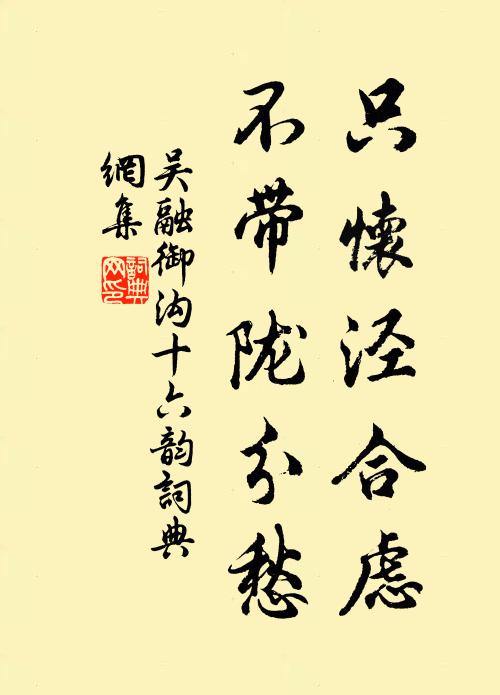 只懷泾合虑
不带陇分愁
吴融御沟十六韵詞典
網集
詞典网印